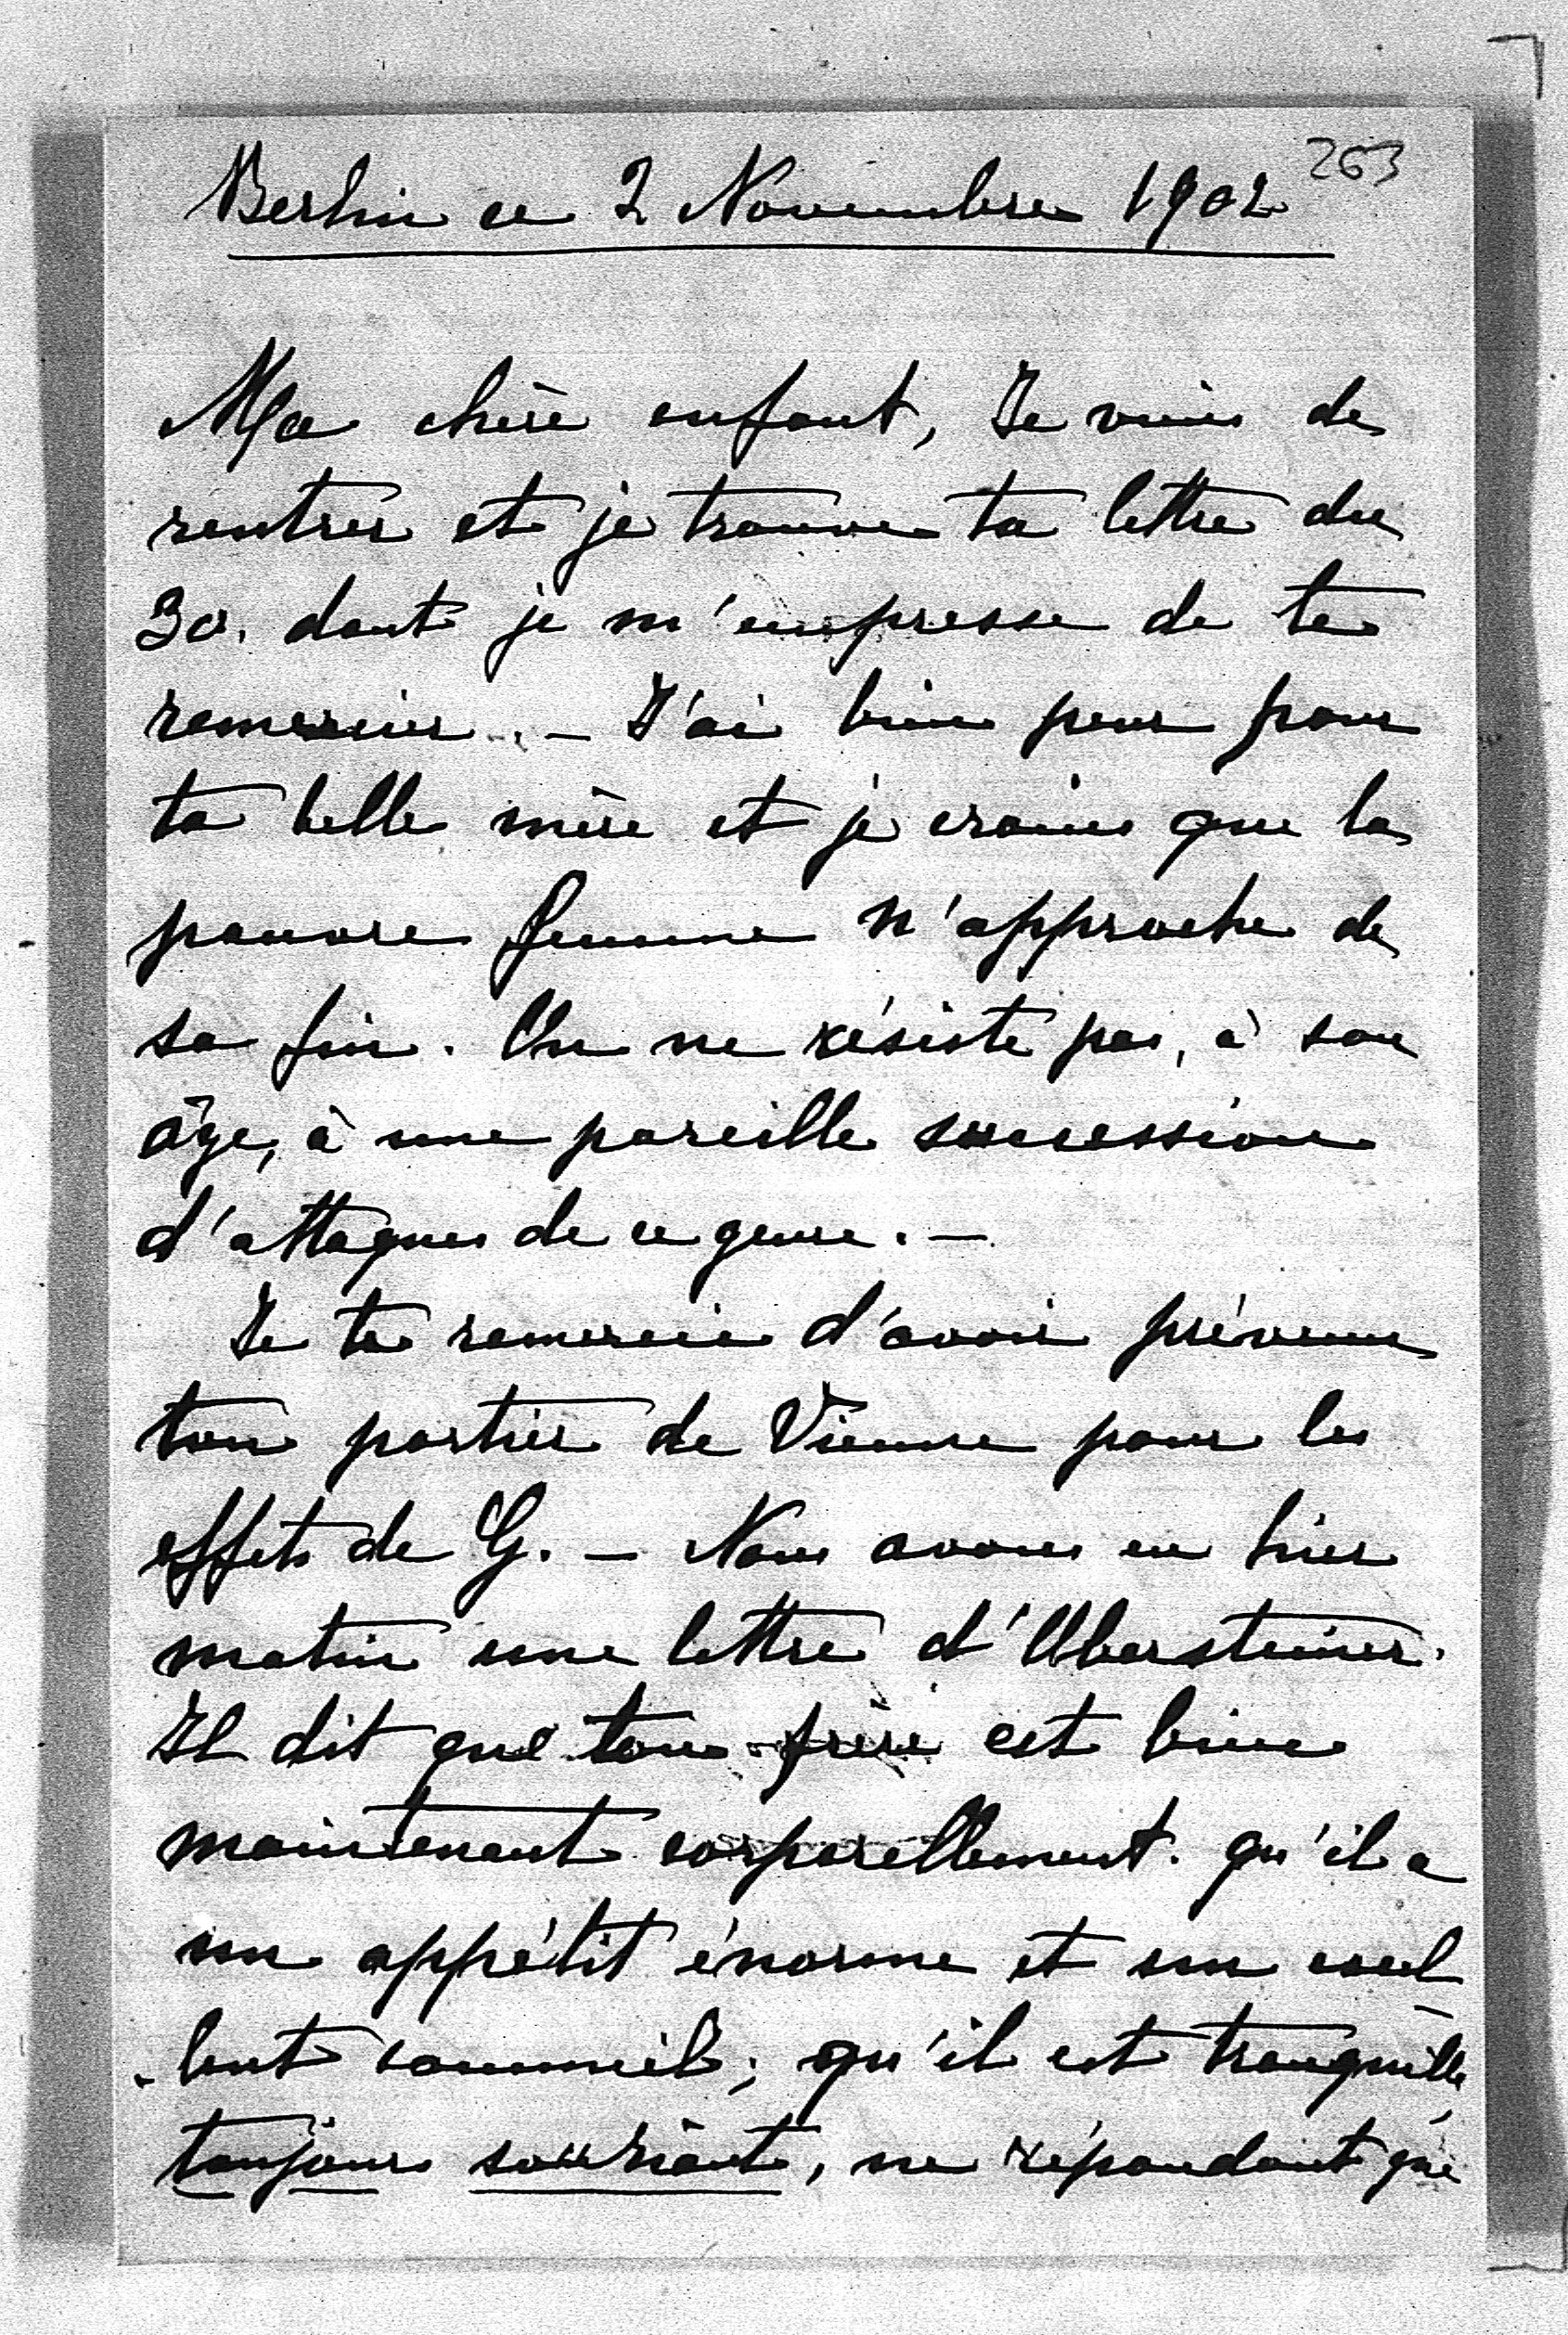 263
Berlin ce 2 Novembre 1902
Ma chère enfant, Je viens de
rentrer et je trouve ta lettre du
30. dont je m'empresse de te
remercier. — J'ai bien peur pour
ta belle mère et je crains que la
pauvre femme n'approche de
sa fin. On ne résiste pas, à son
âge, à une pareille succession
d'attaques de ce genre. —
Je te remercie d'avoir prévenu
ton portier de Vienne pour les
effets de G. — Nous avons eu hier
matin une lettre d'Obersteiner.
Il dit que ton frère est bien
maintenant corporellement. qu'il a
un appétit énorme et un excel
-lent sommeil; qu'il est tranquille,
toujours souriant, ne répondant que